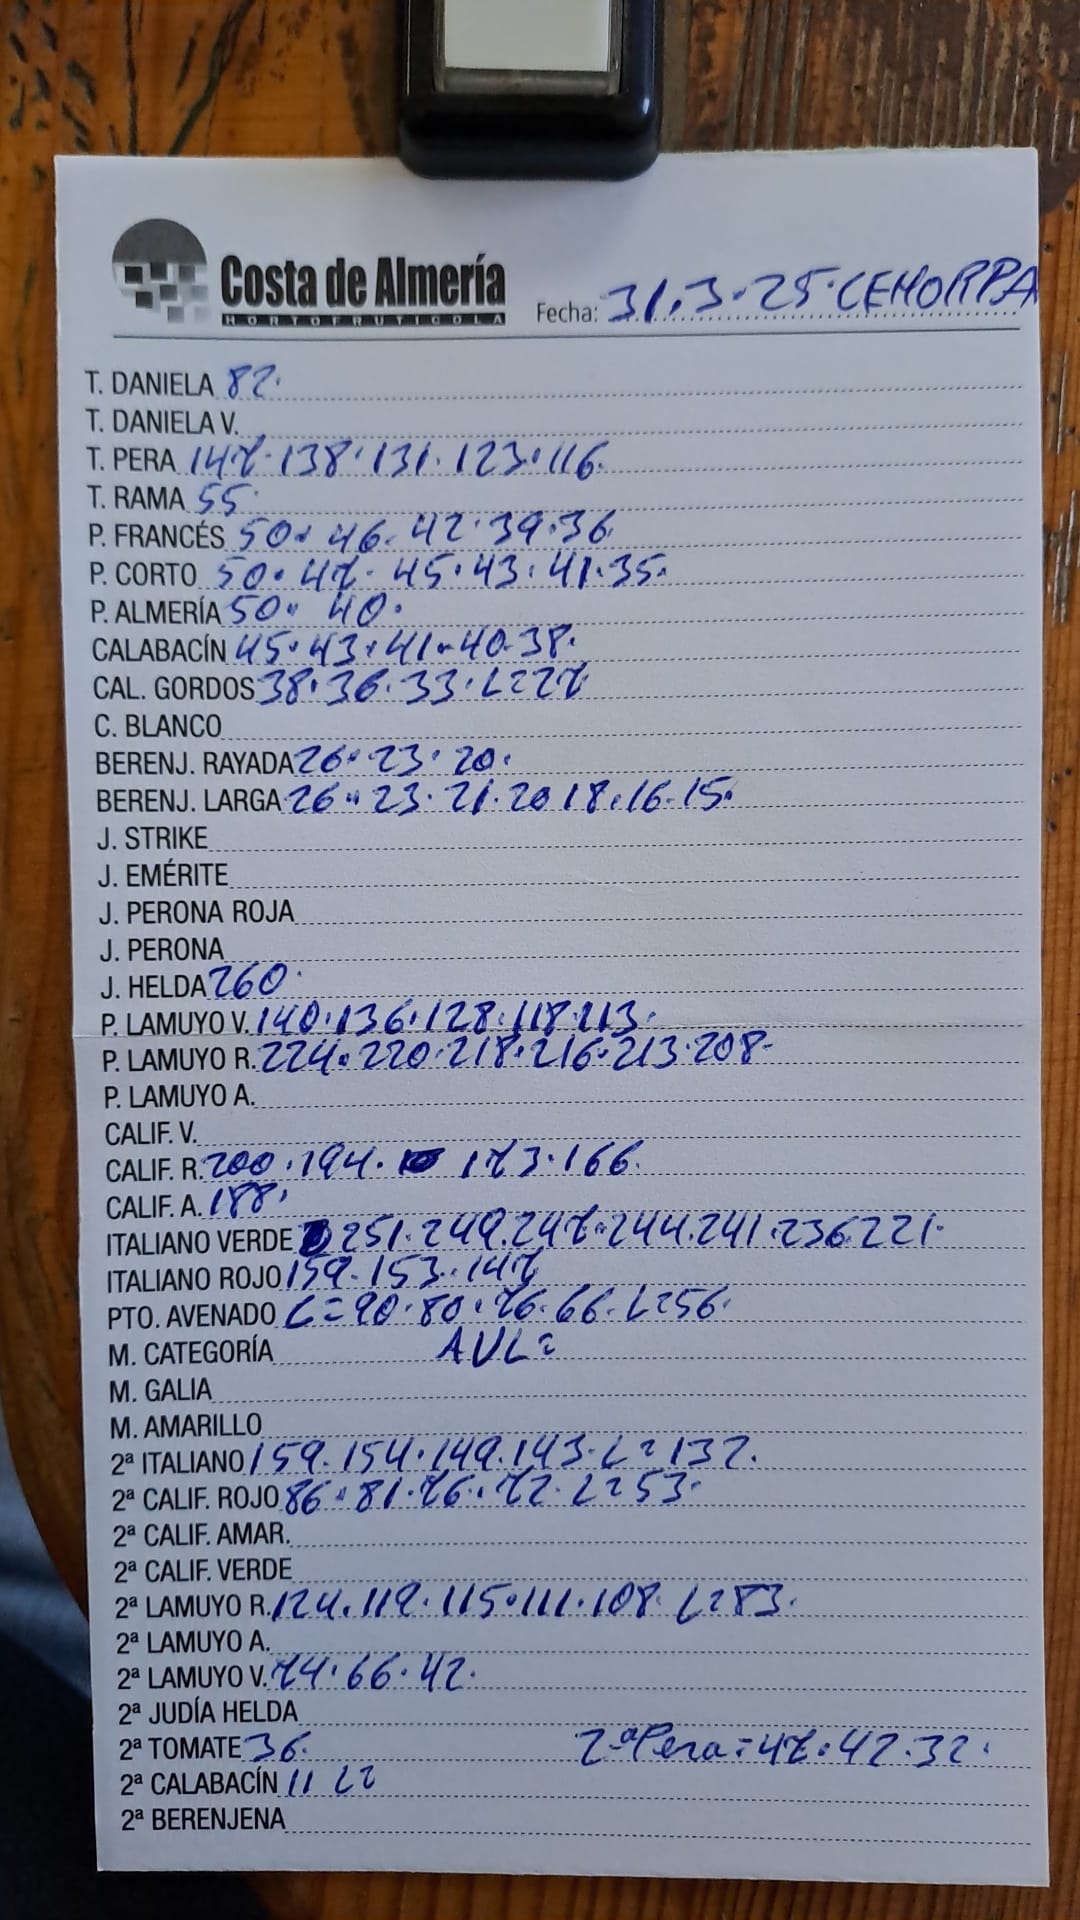 Costa de Almería
HORTOFRUTICOLA
Fecha: 31.3.25.CEHORPA
T. DANIELA 82.
T. DANIELA V.
T. PERA 147.138.131.123.116.
T. RAMA 55.
P. FRANCÉS 50.46.42.39.36.
P. CORTO 50.47.45.43.41.35.
P. ALMERÍA 50.40.
CALABACÍN 45.43.41.40.38.
CAL. GORDOS 38.36.33.L=27
C. BLANCO
BERENJ. RAYADA 26.23.20.
BERENJ. LARGA 26.23.21.20 18.16.15.
J. STRIKE
J. EMÉRITE
J. PERONA ROJA
J. PERONA
J. HELDA 260.
P. LAMUYO V. 140.136.128.118.113.
P. LAMUYO R. 224.220.218.216.213.208.
P. LAMUYO A.
CALIF. V.
CALIF. R. 200.194. 173.166.
CALIF. A. 188.
ITALIANO VERDE 251.249.247.244.241.236.221.
ITALIANO ROJO 159.153.147
PTO. AVENADO L=90.80.76.66.L=56.
M. CATEGORÍA AVL=
M. GALIA
M. AMARILLO
2ª ITALIANO 159.154.149.143.L=132.
2ª CALIF. ROJO 86.81.76.72.L=53.
2ª CALIF. AMAR.
2ª CALIF. VERDE
2ª LAMUYO R. 124.119.115.111.108.L=83.
2ª LAMUYO A.
2ª LAMUYO V. 74.66.42.
2ª JUDÍA HELDA
2ª TOMATE 36. 2ªPera=47.42.32.
2ª CALABACÍN 11 L=
2ª BERENJENA